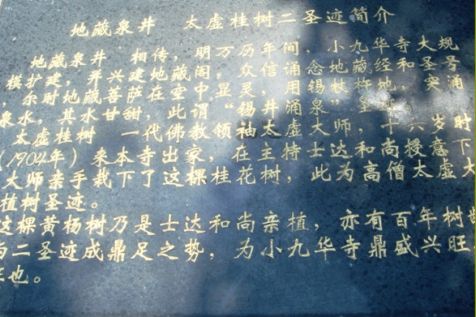 地藏泉井 太虚桂树二圣迹简介
地藏泉井 相传，明万历年间，小九华寺大规
模扩建，并兴建地藏阁，众信诵念地藏经和圣号
，尔时地藏菩萨在空中显灵，用锡杖杵地，突涌
泉水，其水甘甜，此谓“锡井涌泉”
太虚桂树 一代佛教领袖太虚大师，十六岁时
(1904年）来本寺出家，在主持士达和尚授意下
大师亲手栽下了这棵桂花树，此为高僧太虚大
植树圣迹。
这棵黄杨树乃是士达和尚亲植，亦有百年树
与二圣迹成鼎足之势，为小九华寺鼎盛兴旺
也。